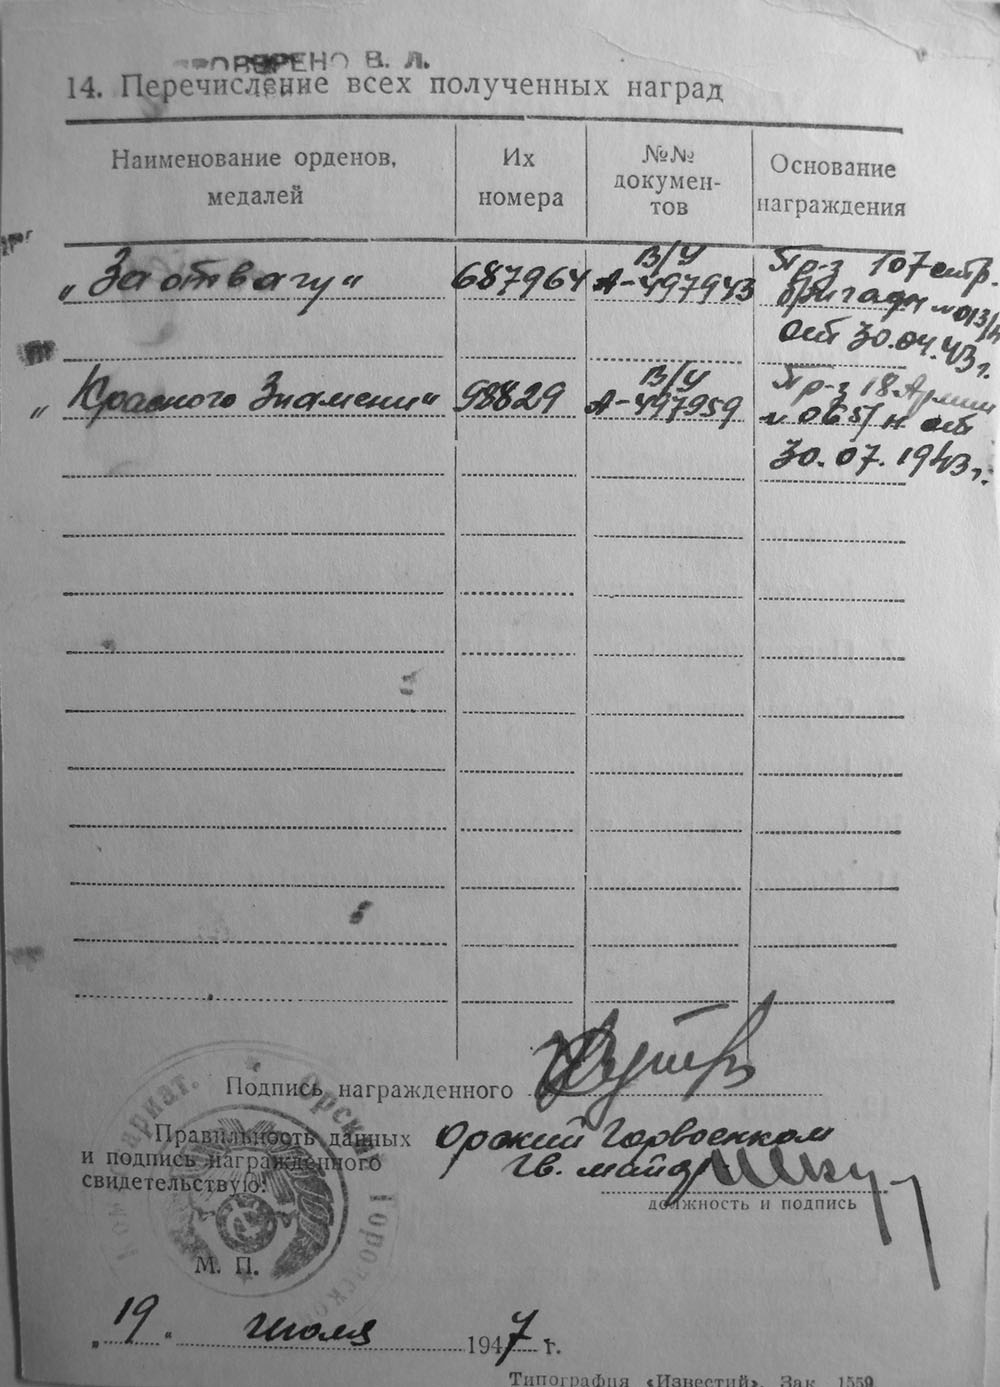 ПРОВЕРЕНО В. Л.
14. Перечисление всех полученных наград
Наименование орденов, медалей
Их номера
№№ докумен-тов
Основание награждения
„За отвагу“ 687964 В/У А-497943 Пр-з 107 стр. бригады № 013/н
от 30.04.43 г.
„Красного Знамени“ 98829 В/У А-497959 Пр-з 18 Армии
№ 065/н от
30.07.1943 г.
Подпись награжденного
Правильность данных
и подпись награжденного
свидетельствую:
Орский Горвоенком
гв. майор
должность и подпись
М. П.
„19“ июля 1947 г.
Типография «Известий». Зак. 1559